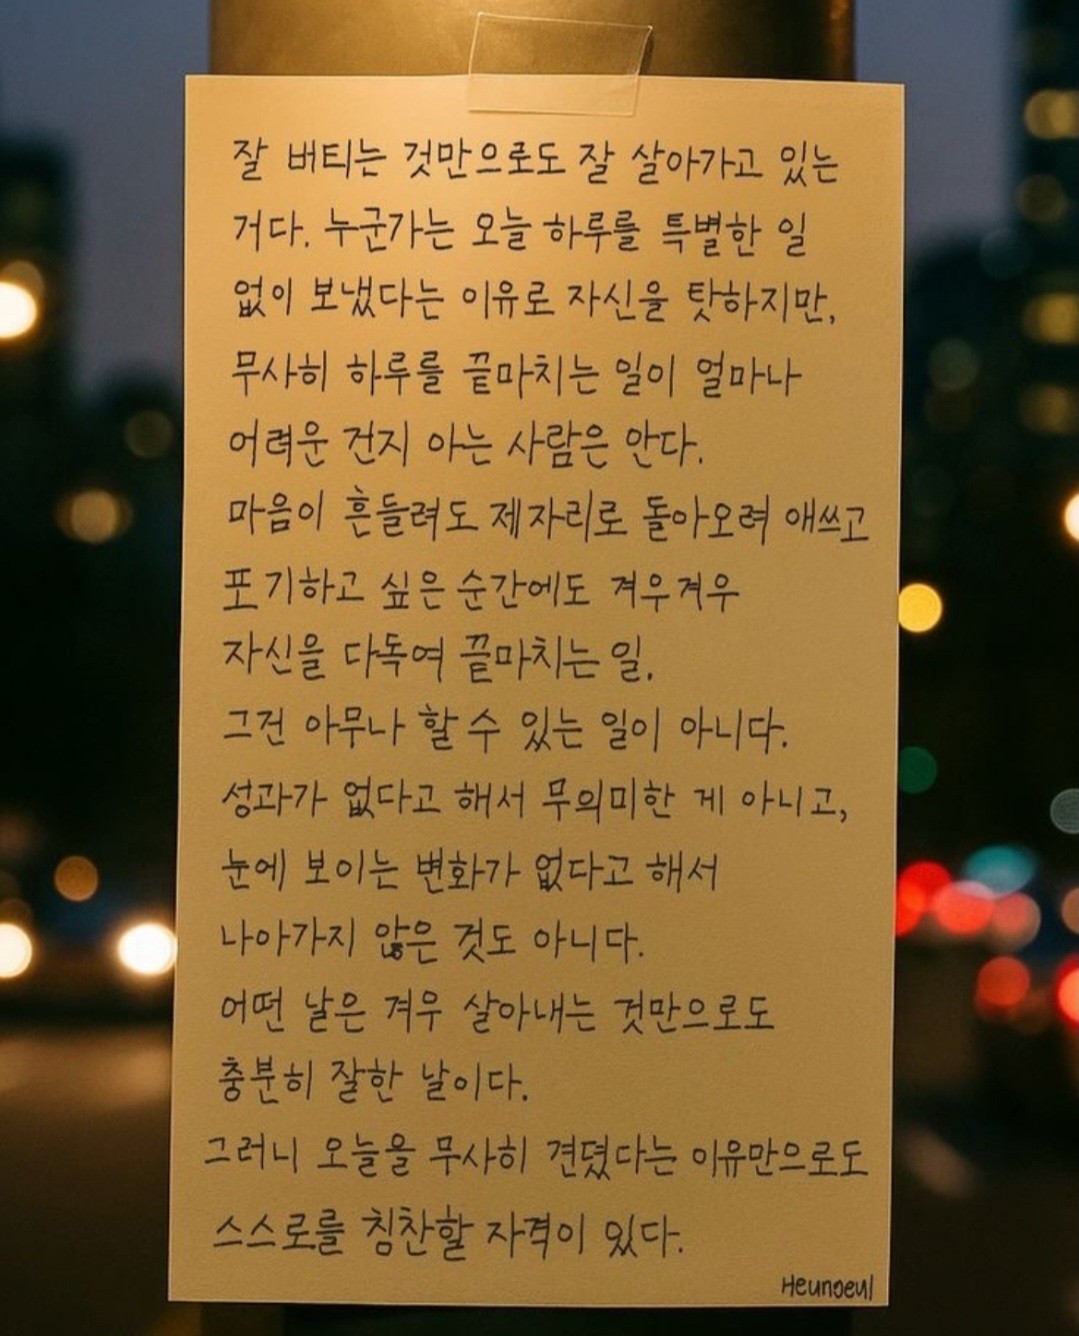 잘 버티는 것만으로도 잘 살아가고 있는
거다. 누군가는 오늘 하루를 특별한 일
없이 보냈다는 이유로 자신을 탓하지만,
무사히 하루를 끝마치는 일이 얼마나
어려운 건지 아는 사람은 안다.
마음이 흔들려도 제자리로 돌아오려 애쓰고
포기하고 싶은 순간에도 겨우겨우
자신을 다독여 끝마치는 일.
그건 아무나 할 수 있는 일이 아니다.
성과가 없다고 해서 무의미한 게 아니고,
눈에 보이는 변화가 없다고 해서
나아가지 않은 것도 아니다.
어떤 날은 겨우 살아내는 것만으로도
충분히 잘한 날이다.
그러니 오늘을 무사히 견뎠다는 이유만으로도
스스로를 칭찬할 자격이 있다.